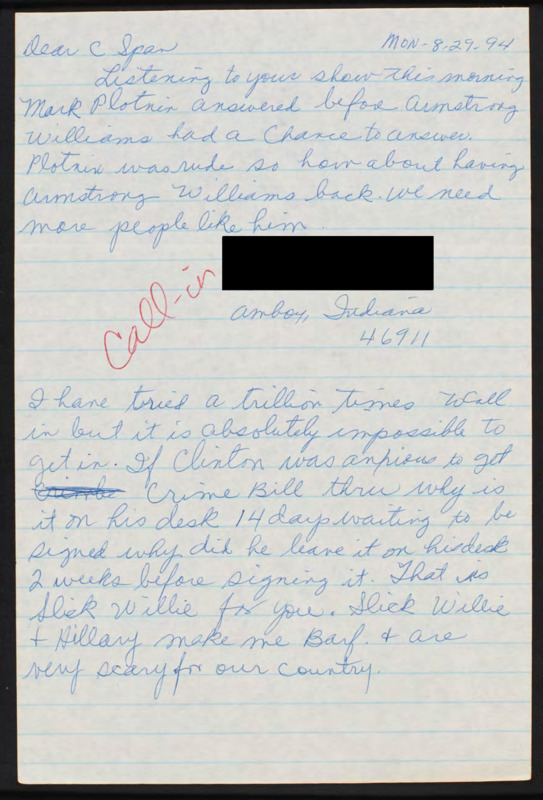 Dear C Span
MON-8-29-94
Listening to your show this morning
Mark Plotnin answered befoe Armstrong
Williams had a Chance to answer.
Plotnin was rude so how about having
Armstrong Williams back. We need
more people like him.
Call-in
Amboy, Indiana
46911
I have tried a trillion times to call
in but it is absolutely impossible to
get in. If Clinton was anxious to get
Crime Bill thru why is
it on his desk 14 days waiting to be
signed why did he leave it on his desk
2 weeks before signing it. That is
Slick Willie for you. Slick Willie
+ Hillary make me Barf. + are
very scary for our country.